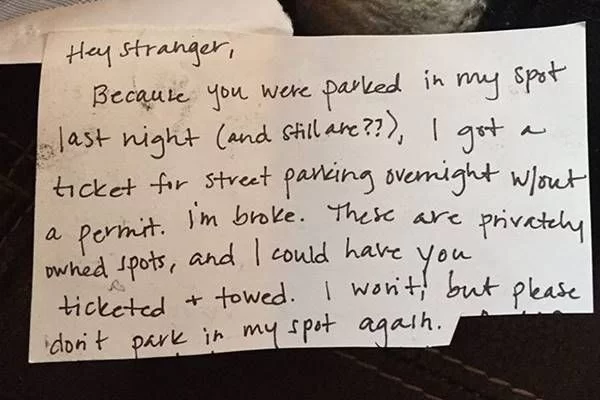 Hey Stranger,
Because you were parked in my spot
last night (and still are??), I got a
ticket for street parking overnight w/out
a permit. I'm broke. These are privately
owned spots, and I could have you
ticketed + towed. I won't, but please
don't park in my spot again.